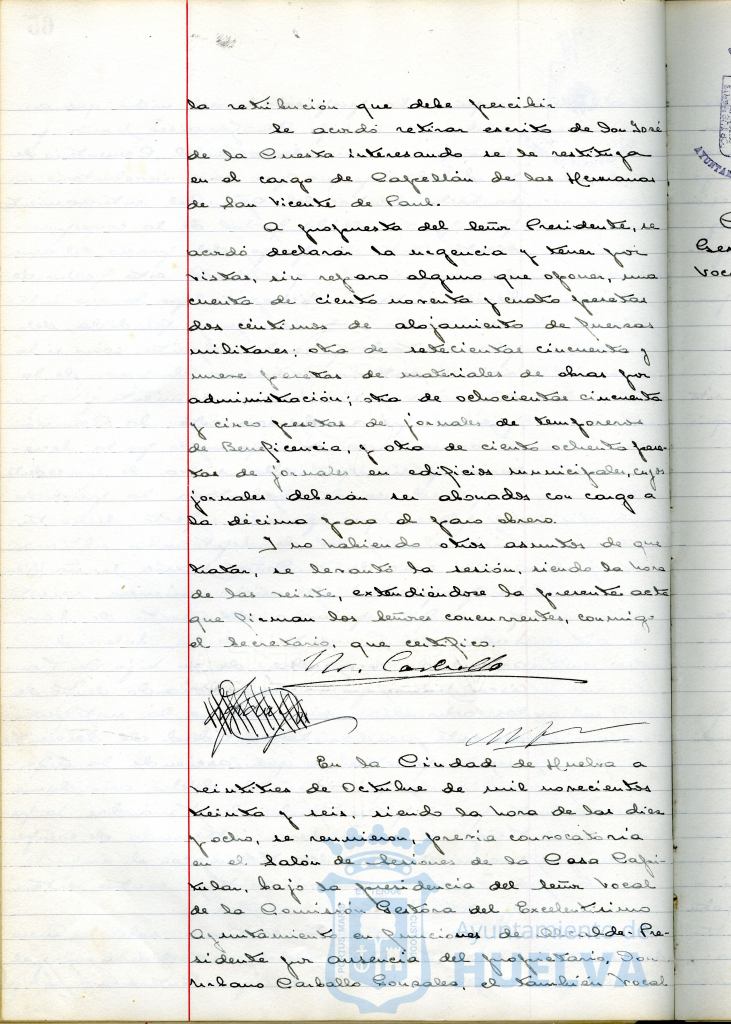 la retribución que debe percibir
Se acordó retirar escrito de Don José
de la Cuesta interesando se le restituya
en el cargo de Capellán de las Hermanas
de San Vicente de Paul.
A propuesta del Señor Presidente, se
acordó declarar la urgencia y tener por
vistas, sin reparo alguno que oponer, una
cuenta de ciento noventa y cuatro pesetas
dos céntimos de alojamiento de fuerzas
militares; otra de setecientas cincuenta y
nueve pesetas de materiales de obras por
administración; otra de ochocientas cincuenta
y cinco pesetas de jornales de temporeros
de Beneficencia, y otra de ciento ochenta pese-
tas de jornales en edificios municipales, cuyos
jornales deberán ser abonados con cargo a
la décima para el paro obrero.
Y no habiendo otros asuntos de que
tratar, se levantó la sesión, siendo la hora
de las veinte, extendiéndose la presente acta
que firman los Señores concurrentes, conmigo
el Secretario, que certifico.
En la Ciudad de Huelva a
veintitres de Octubre de mil novecientos
treinta y seis, siendo la hora de las diez
y ocho, se reunieron, previa convocatoria
en el Salón de Sesiones de la Casa Capi-
tular, bajo la presidencia del Señor Vocal
de la Comisión Gestora del Excelentísimo
Ayuntamiento en funciones de Alcalde-Pre-
sidente por ausencia del propietario, Don
Urbano Carballo Gonzales, el también Vocal
Ayuntamiento de
HUELVA